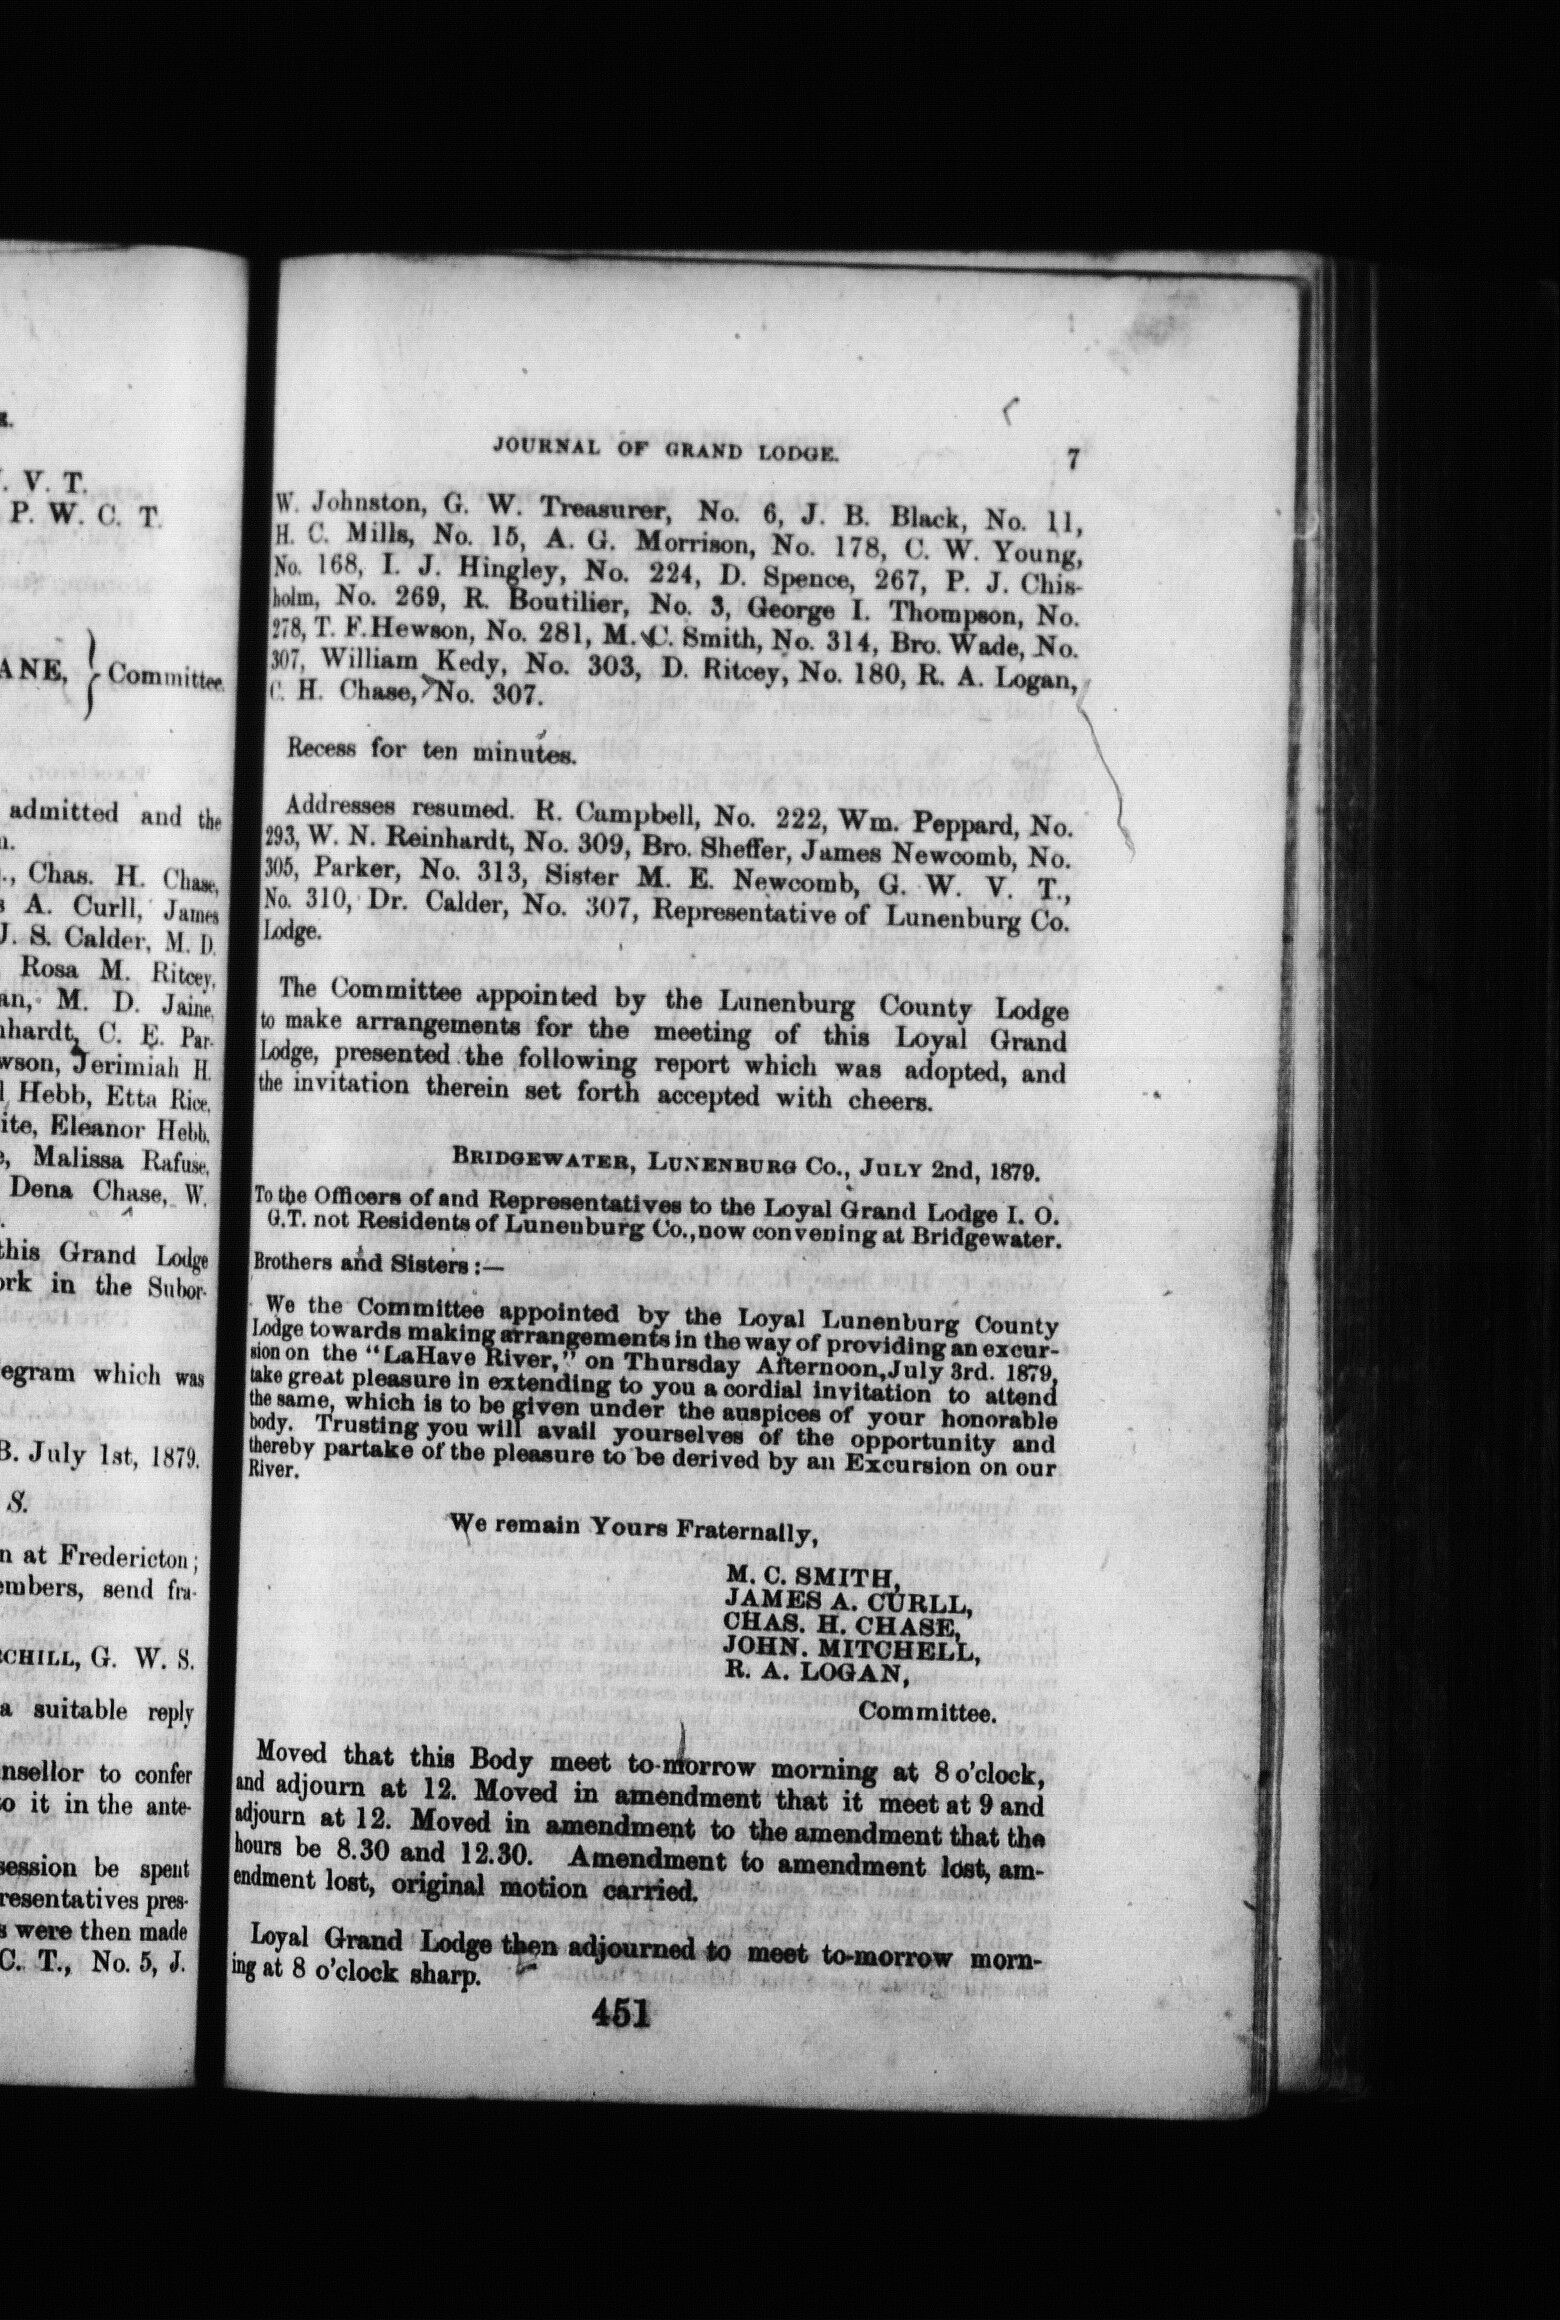 V. T.
P. W. C. T.
ANE, } Committee.
admitted and the
Chas. H. Chase,
A. Curll, James
J. S. Calder, M. D.
Rosa M. Ritcey,
M. D. Jaine,
C. E. Par-
Jerimiah H.
Hebb, Etta Rice,
Eleanor Hebb,
Malissa Rafuse,
Dena Chase, W.
this Grand Lodge
in the Subor-
which was
B. July 1st, 1879.
S.
at Fredericton;
send fra-
G. W. S.
a suitable reply
to confer
it in the ante-
session be spent
pres-
were then made
C. T., No. 5, J.
JOURNAL OF GRAND LODGE. 7
W. Johnston, G. W. Treasurer, No. 6, J. B. Black, No. 11,
H. C. Mills, No. 15, A. G. Morrison, No. 178, C. W. Young,
No. 168, I. J. Hingley, No. 224, D. Spence, 267, P. J. Chis-
holm, No. 269, R. Boutilier, No. 3, George I. Thompson, No.
278, T. F. Hewson, No. 281, M. C. Smith, No. 314, Bro. Wade, No.
307, William Kedy, No. 303, D. Ritcey, No. 180, R. A. Logan,
C. H. Chase, No. 307.
Recess for ten minutes.
Addresses resumed. R. Campbell, No. 222, Wm. Peppard, No.
293, W. N. Reinhardt, No. 309, Bro. Sheffer, James Newcomb, No.
305, Parker, No. 313, Sister M. E. Newcomb, G. W. V. T.,
No. 310, Dr. Calder, No. 307, Representative of Lunenburg Co.
Lodge.
The Committee appointed by the Lunenburg County Lodge
to make arrangements for the meeting of this Loyal Grand
Lodge, presented the following report which was adopted, and
the invitation therein set forth accepted with cheers.
BRIDGEWATER, LUNENBURG Co., JULY 2nd, 1879.
To the Officers of and Representatives to the Loyal Grand Lodge I. O.
G.T. not Residents of Lunenburg Co., now convening at Bridgewater.
Brothers and Sisters:—
We the Committee appointed by the Loyal Lunenburg County
Lodge towards making arrangements in the way of providing an excur-
sion on the "LaHave River," on Thursday Afternoon, July 3rd. 1879,
take great pleasure in extending to you a cordial invitation to attend
the same, which is to be given under the auspices of your honorable
body. Trusting you will avail yourselves of the opportunity and
thereby partake of the pleasure to be derived by an Excursion on our
River.
We remain Yours Fraternally,
M. C. SMITH,
JAMES A. CURLL,
CHAS. H. CHASE,
JOHN. MITCHELL,
R. A. LOGAN,
Committee.
Moved that this Body meet to-morrow morning at 8 o'clock,
and adjourn at 12. Moved in amendment that it meet at 9 and
adjourn at 12. Moved in amendment to the amendment that the
hours be 8.30 and 12.30. Amendment to amendment lost, am-
endment lost, original motion carried.
Loyal Grand Lodge then adjourned to meet to-morrow morn-
ing at 8 o'clock sharp.
451